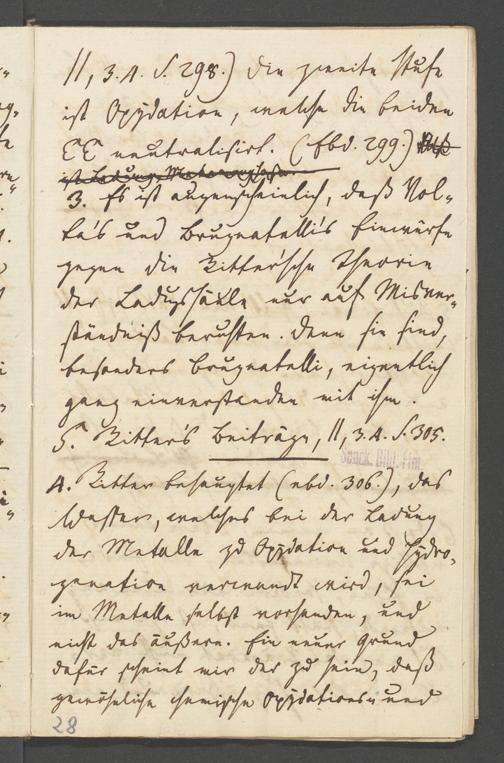 II, 3. A. S. 298.) Die zweite Stufe
ist Oxydation, welche die beiden
EE neutralisirt. (Ebd. 299.)
3. Es ist augenscheinlich, daß Vol-
ta's und Brugnatelli's Einwürfe
gegen die Ritter'sche Theorie
der Ladugssäule nur auf Misver-
ständniß beruhten. Denn sie sind,
besonders Brugnatelli, eigentlich
ganz einverstanden mit ihm.
S. Ritter's Beiträge, II, 3. A. S. 305.
4. Ritter behauptet (ebd. 306.), das
Wasser, welches bei der Ladung
der Metalle zu Oxydation und Hydro-
genation verwandt wird, sei
im Metalle selbst vorhanden, und
nicht das äußere. Ein neuer Grund
dafür scheint mir der zu sein, daß
gewöhnliche chemische Oxydations- und
28